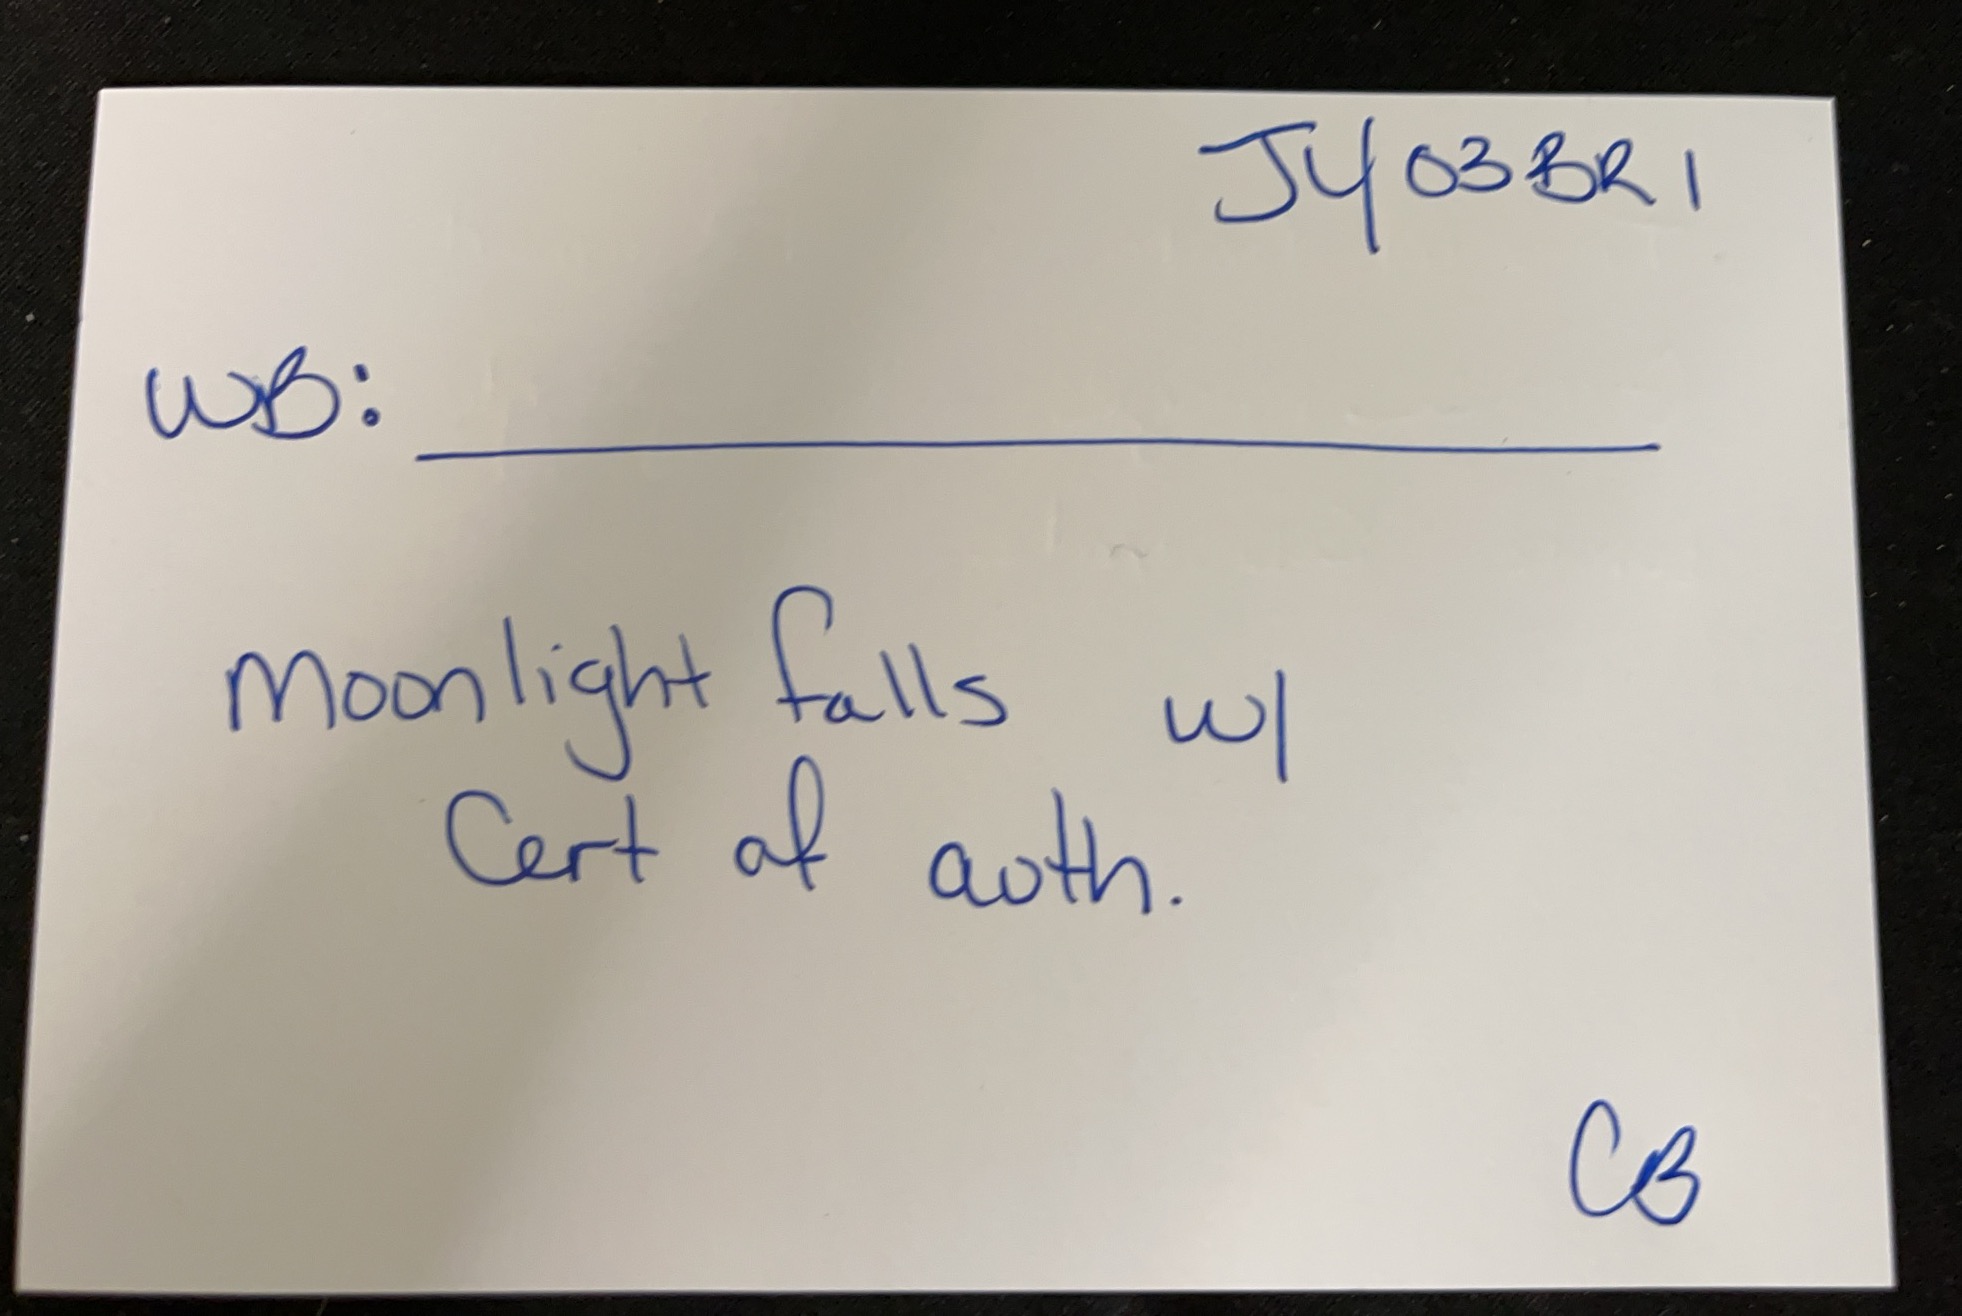 JY03BR1
WB:
Moonlight falls w/
Cert of auth.
CB